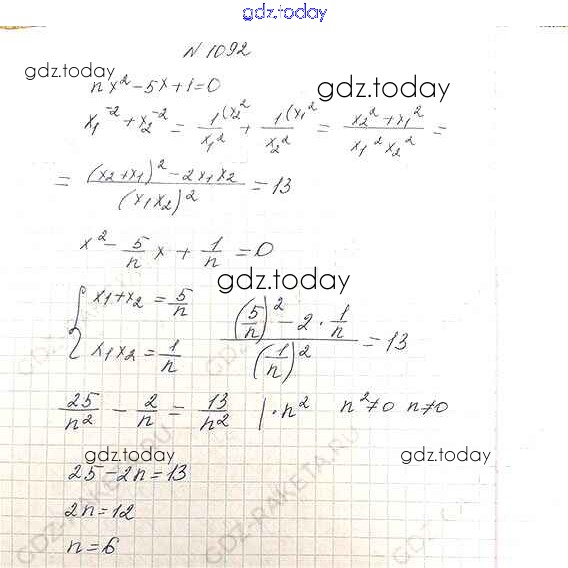 gdz.today
N 1092
gdz.today
nx² - 5x + 1 = 0
gdz.today
x₁⁻² + x₂⁻² = 1(x₂²/x₁² + 1(x₁²/x₂² = (x₂² + x₁²)/(x₁² x₂²) =
= ((x₂ + x₁)² - 2x₁x₂)/(x₁x₂)² = 13
x² - 5/n x + 1/n = 0
gdz.today
{ x₁ + x₂ = 5/n
x₁x₂ = 1/n
((5/n)² - 2 · 1/n)/(1/n)² = 13
25/n² - 2/n = 13/n² | · n² n² ≠ 0 n ≠ 0
gdz.today
gdz.today
25 - 2n = 13
2n = 12
n = 6
GDZ-RAKETA.RU